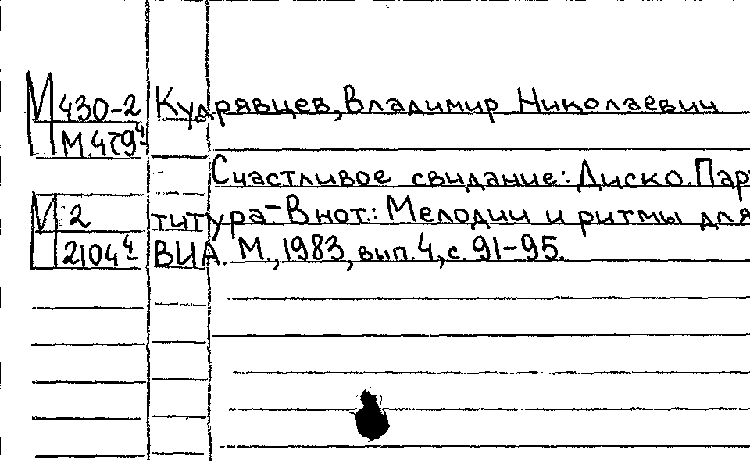 М 430-2 Кудрявцев, Владимир Николаевич
М.479⁴
Счастливое свидание: Диско. Пар
М:2 титура - В нот.: Мелодии и ритмы для
2104⁴ ВИА. М., 1983, вып. 4, с. 91-95.